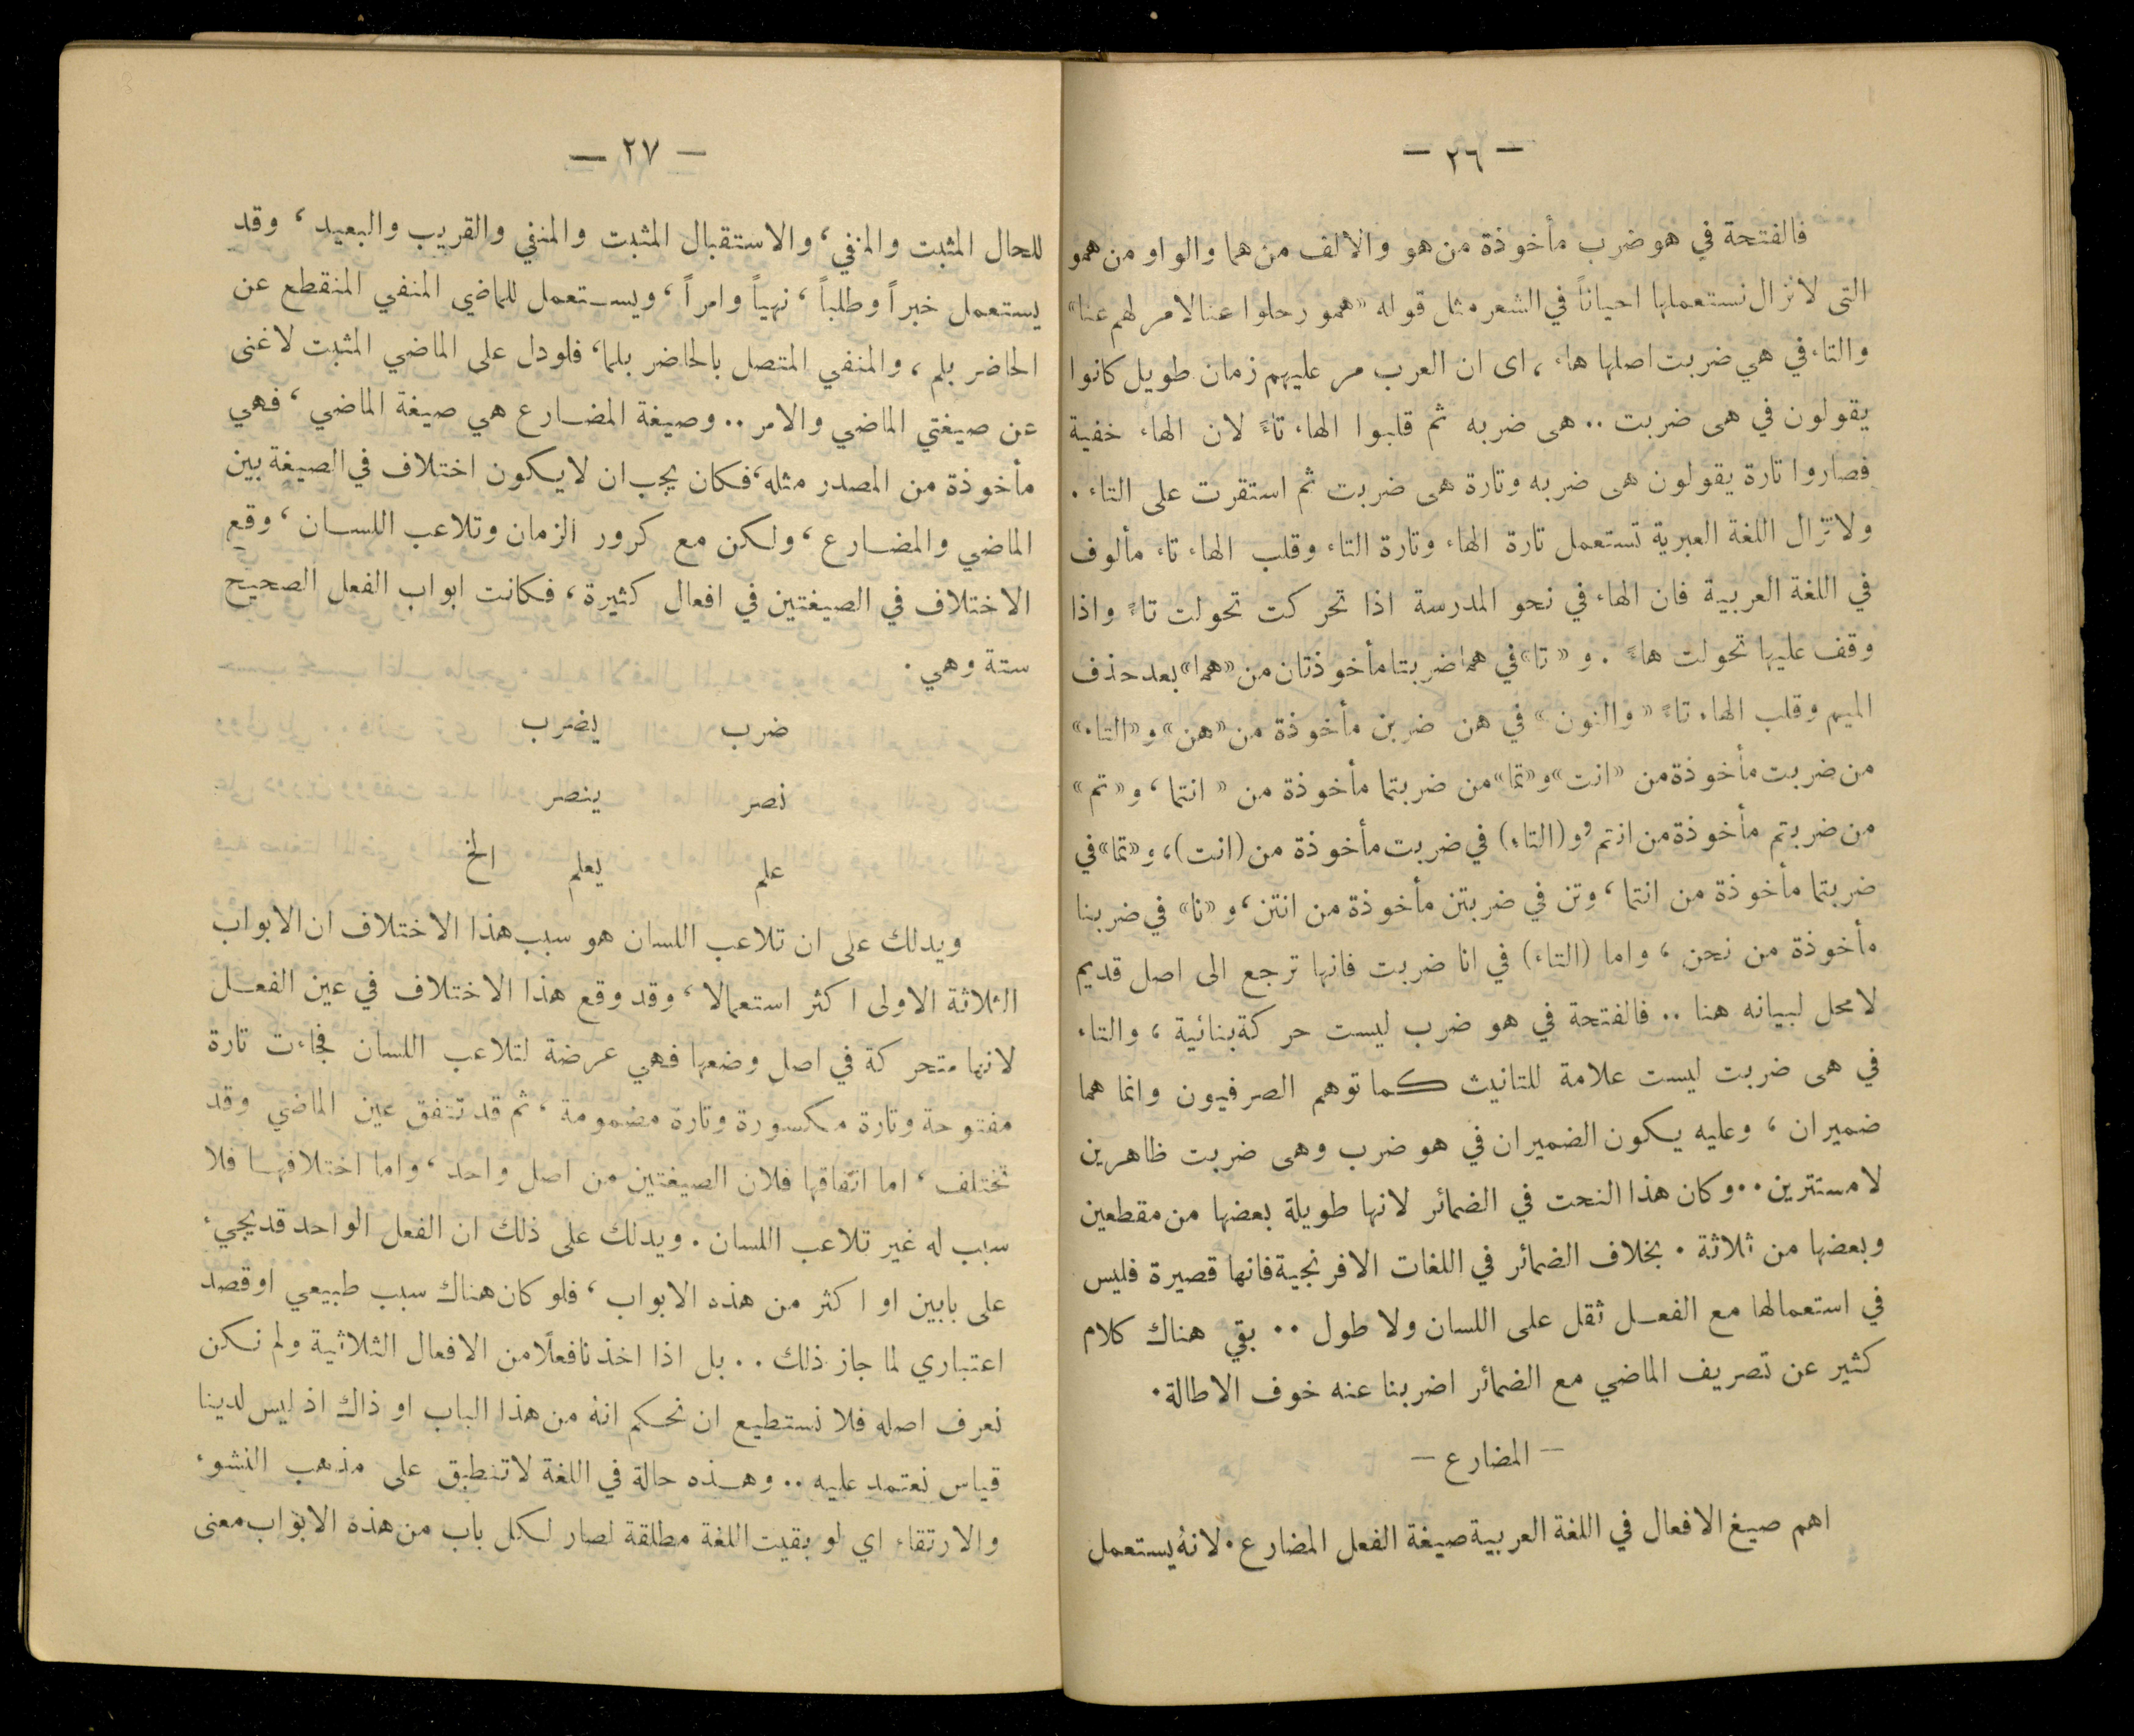 — ٢٦ —
فالفتحة في هو ضرب مأخوذة من هو والالف من هما والواو من همو
التى لا نزال نستعملها احياناً في الشعر مثل قوله «همو رحلوا عنا لامر لهم عنا»
والتاء في هي ضربت اصلها هاء ، اى ان العرب مر عليهم زمان طويل كانوا
يقولون في هى ضربت .. هى ضربه ثم قلبوا الهاء تاءً لان الهاء خفية
فصاروا تارة يقولون هى ضربه وتارة هى ضربت ثم استقرت على التاء .
ولا تزال اللغة العبرية تستعمل تارة الهاء وتارة التاء وقلب الهاء تاء مألوف
في اللغة العربية فان الهاء في نحو المدرسة اذا تحركت تحولت تاءً واذا
وقف عليها تحولت هاءً . و «تا» في هما ضربتا مأخوذتان من «هما» بعد حذف
الميم وقلب الهاء تاءً «والنون» في هن ضربن مأخوذة من «هن» و «التاء»
من ضربت مأخوذة من «انت» و «تما» من ضربتما مأخوذة من « انتما ، و «تم»
من ضربتم مأخوذة من انتم و (التاء) في ضربت مأخوذة من (انت) ، و «تما» في
ضربتما مأخوذة من انتما ، وتن في ضربتن مأخوذة من انتن ، و «نا» في ضربنا
مأخوذة من نحن ، واما (التاء) في انا ضربت فانها ترجع الى اصل قديم
لا محل لبيانه هنا .. فالفتحة في هو ضرب ليست حركة بنائية ، والتاء
في هى ضربت ليست علامة للتانيث كما توهم الصرفيون وانما هما
ضميران ، وعليه يكون الضميران في هو ضرب وهى ضربت ظاهرين
لا مستترين .. وكان هذا النحت في الضمائر لانها طويلة بعضها من مقطعين
وبعضها من ثلاثة . بخلاف الضمائر في اللغات الافرنجية فانها قصيرة فليس
في استعمالها مع الفعل ثقل على اللسان ولا طول .. بقي هناك كلام
كثير عن تصريف الماضي مع الضمائر اضربنا عنه خوف الاطالة .
— المضارع —
اهم صيغ الافعال في اللغة العربية صيغة الفعل المضارع . لانهُ يستعمل
— ٢٧ —
للحال المثبت والمنفي ، والاستقبال المثبت والمنفي والقريب والبعيد ، وقد
يستعمل خبراً وطلباً ، نهياً وامراً ، ويستعمل للماضي المنفي المنقطع عن
الحاضر بلم ، والمنفي المتصل بالحاضر بلما ، فلو دل على الماضي المثبت لاغنى
عن صيغتي الماضي والامر .. وصيغة المضارع هي صيغة الماضي ، فهي
مأخوذة من المصدر مثله ، فكان يجب ان لا يكون اختلاف في الصيغة بين
الماضي والمضارع ، ولكن مع كرور الزمان وتلاعب اللسان ، وقع
الاختلاف في الصيغتين في افعال كثيرة ، فكانت ابواب الفعل الصحيح
ستة وهي .
ضرب يضرب
نصر ينصر
علم يعلم الخ
ويدلك على ان تلاعب اللسان هو سبب هذا الاختلاف ان الابواب
الثلاثة الاولى اكثر استعمالا ، وقد وقع هذا الاختلاف في عين الفعل
لانها متحركة في اصل وضعها فهي عرضة لتلاعب اللسان فجاءت تارة
مفتوحة وتارة مكسورة وتارة مضمومة ، ثم قد تتفق عين الماضي وقد
تختلف ، اما اتفاقها فلان الصيغتين من اصل واحد ، واما اختلافها فلا
سبب له غير تلاعب اللسان . ويدلك على ذلك ان الفعل الواحد قد يجيء
على بابين او اكثر من هذه الابواب ، فلو كان هناك سبب طبيعي او قصد
اعتباري لما جاز ذلك .. بل اذا اخذنا فعلاً من الافعال الثلاثية ولم نكن
نعرف اصله فلا نستطيع ان نحكم انهُ من هذا الباب او ذاك اذ ليس لدينا
قياس نعتمد عليه .. وهذه حالة في اللغة لا تنطبق على مذهب النشوء
والارتقاء اي لو بقيت اللغة مطلقة لصار لكل باب من هذه الابواب معنى